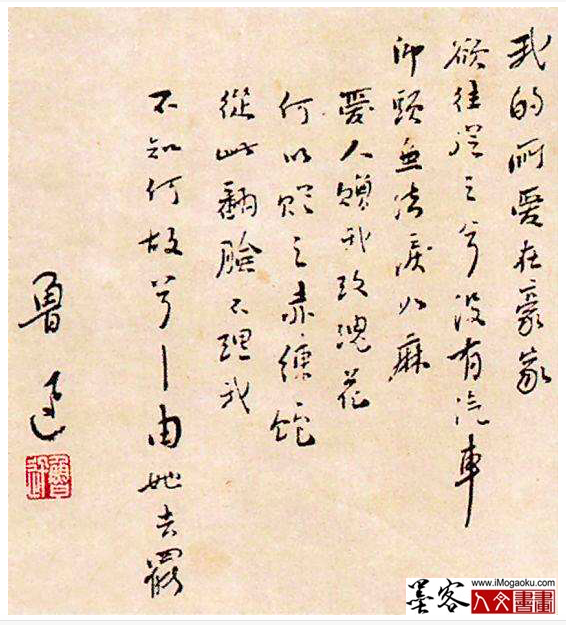 我的所愛在豪家
欲往從之兮没有汽車
仰頭無法淚如麻
愛人贈我玫瑰花
何以贈之赤練蛇
從此翻臉不理我
不知何故兮—由她去罷
魯迅
魯迅
墨客
www.iMogaoku.com
人文書畫